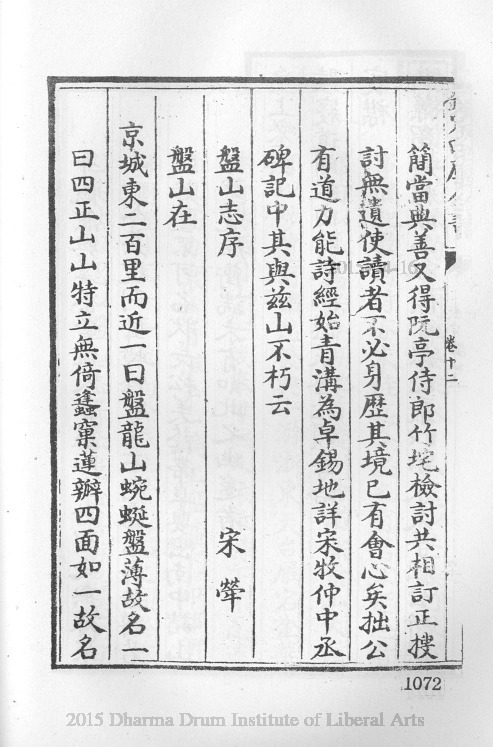 欽定四庫全書
卷十二
簡當典善又得阮亭侍郎竹垞檢討共相訂正搜
討無遺使讀者不必身歴其境已有會心矣拙公
有道力能詩經始青溝為卓錫地詳宋牧仲中丞
碑記中其與兹山不朽云
盤山志序
宋犖
盤山在
京城東二百里而近一曰盤龍山蜿蜒盤薄故名一
曰四正山山特立無倚蠭窠蓮瓣四面如一故名
1072
2015 Dharma Drum Institute of Liberal Arts